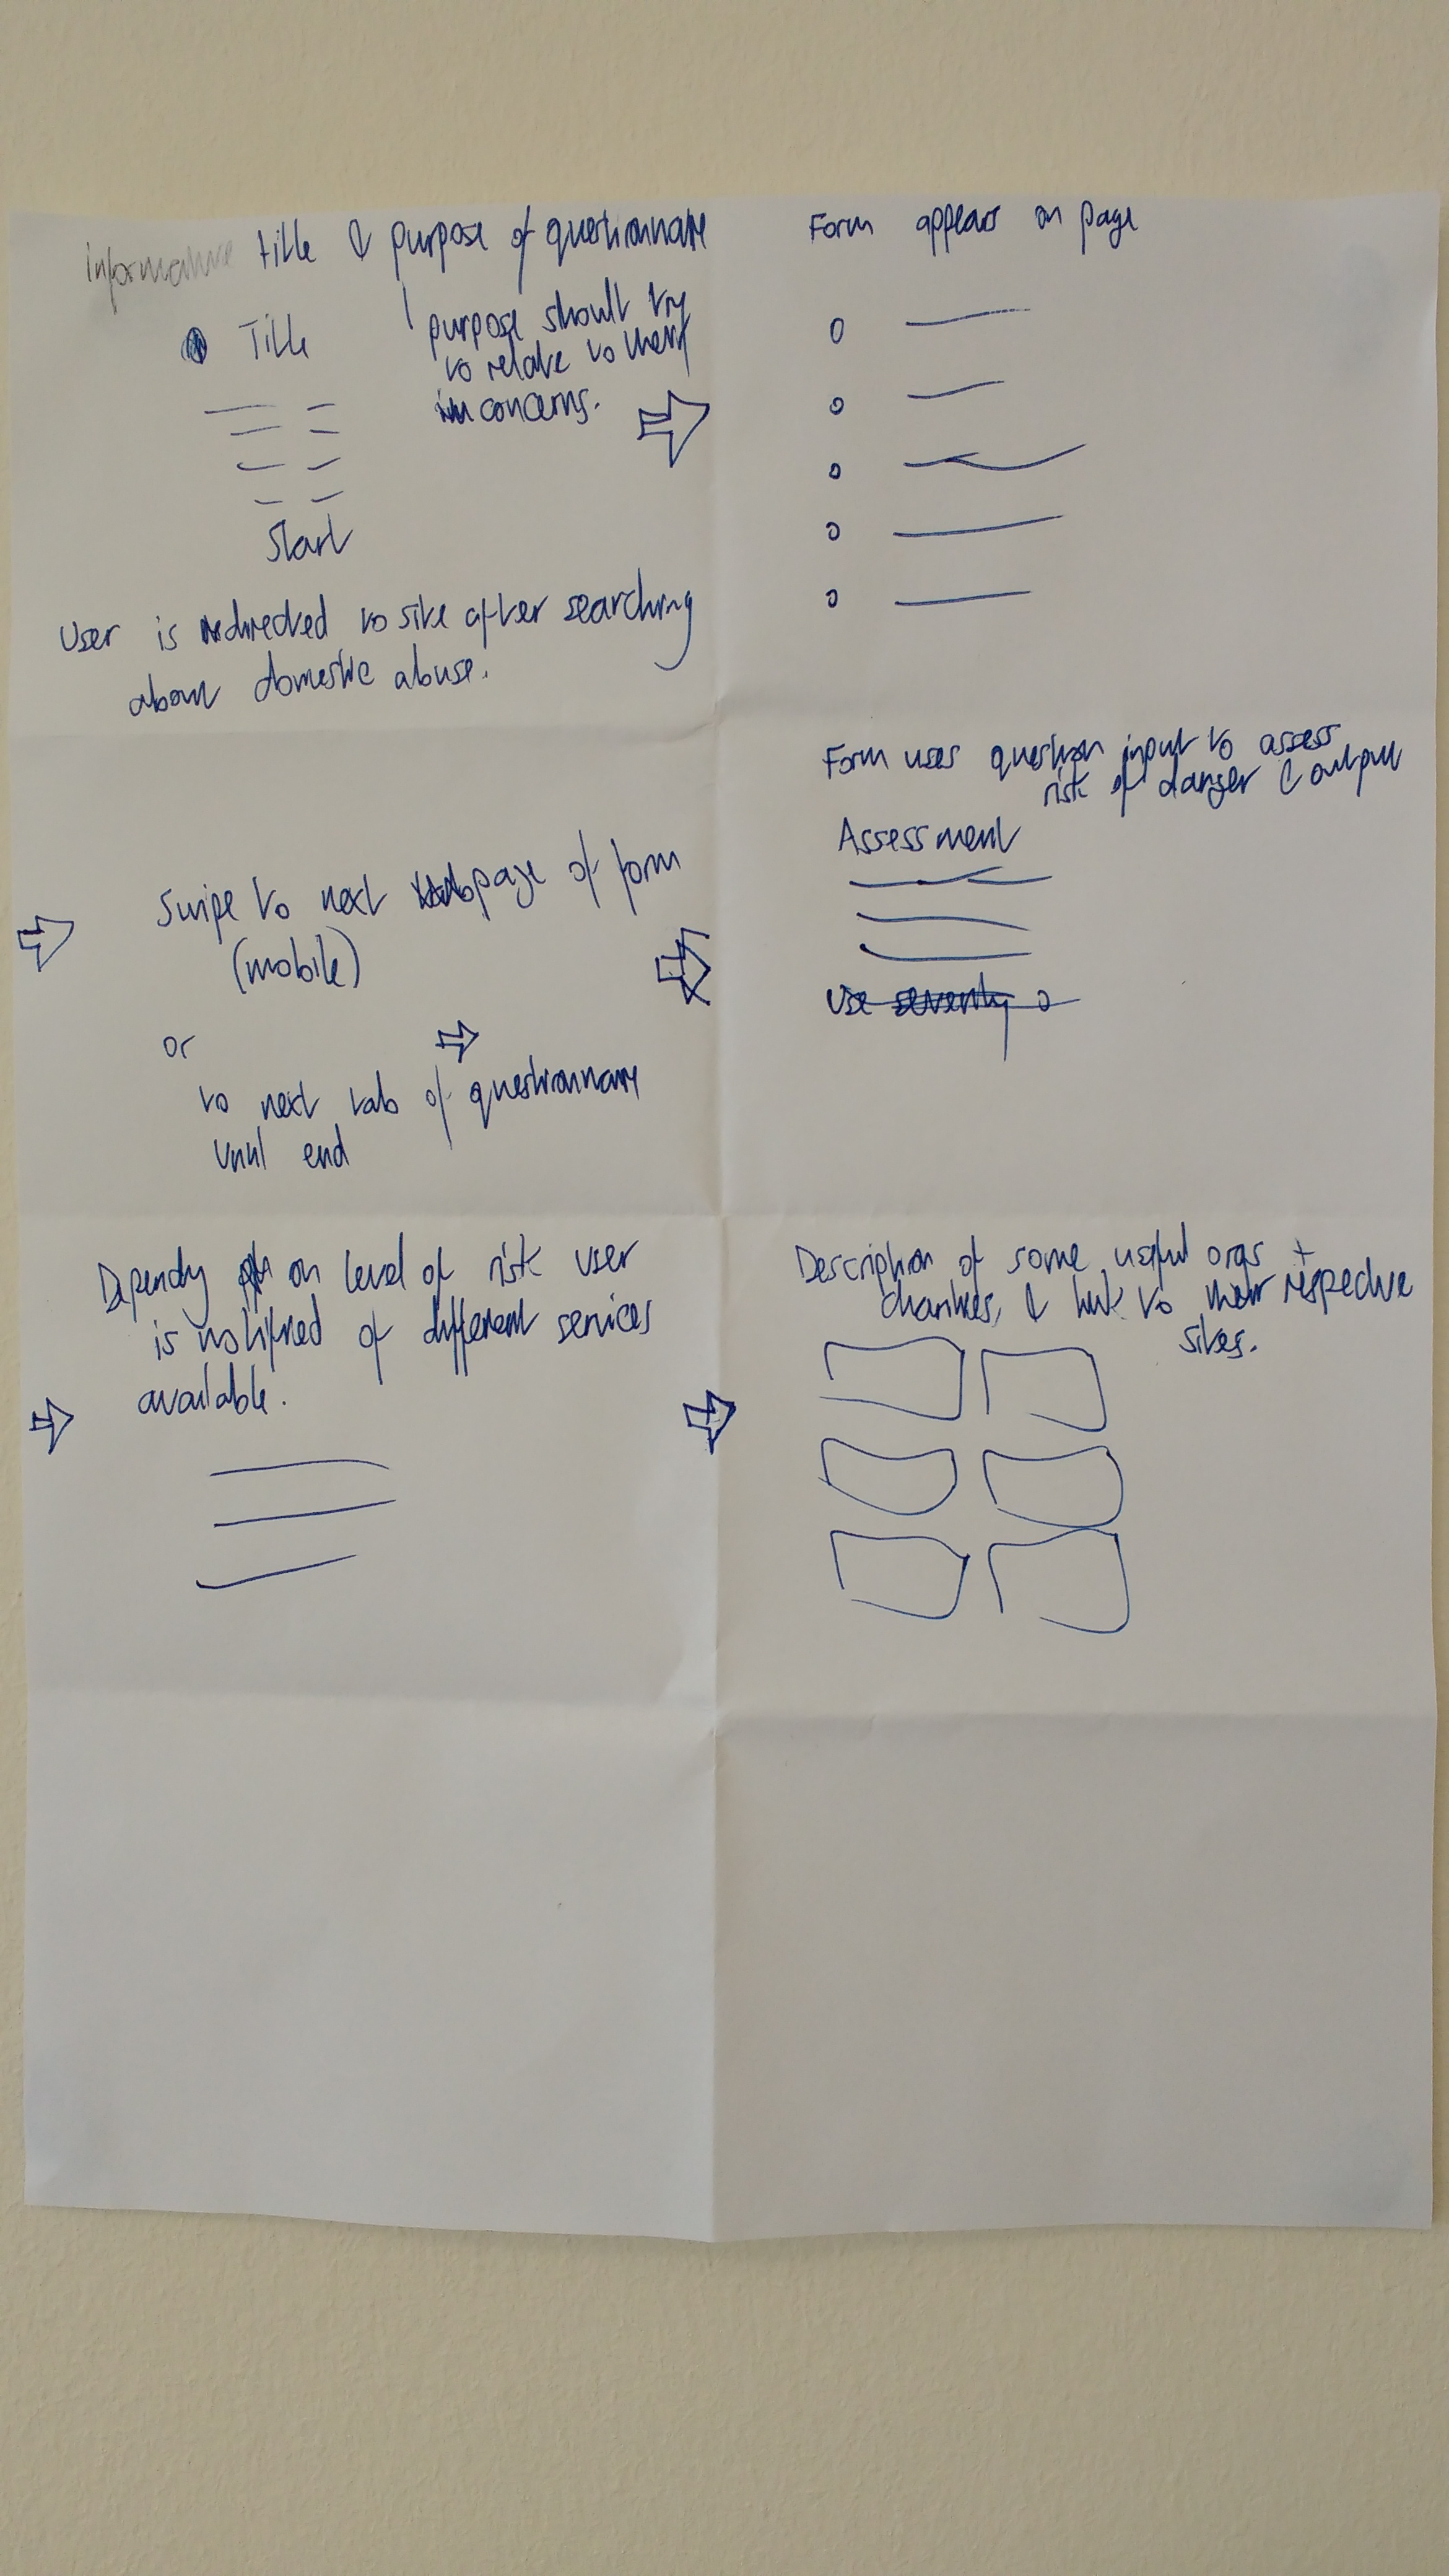 Informative title & purpose of questionnaire
Title
purpose should try
to relate to their
concerns.
Start
User is redirected to site after searching
about domestic abuse.
Form appears on page
Swipe to next page of form
(mobile)
or
to next tab of questionnary
until end
Form uses question input to assess
risk of danger & output
Assessment
Use severity
Dependy on level of risk user
is notified of different services
available.
Description of some useful orgs +
charities, & link to their respective
sites.